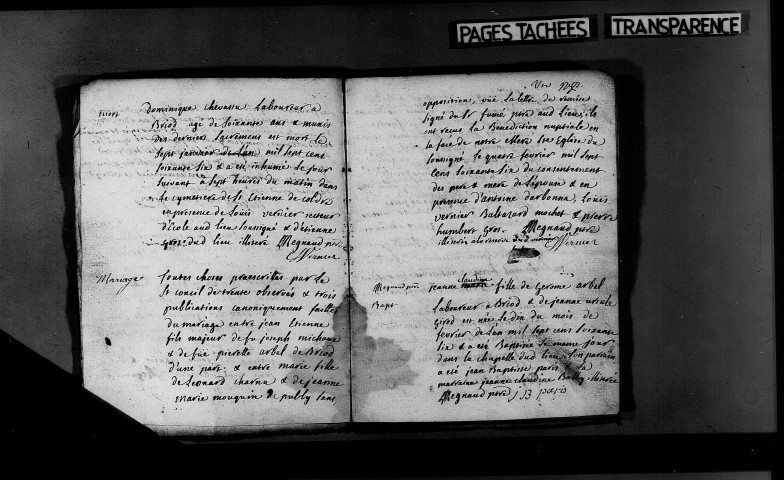 PAGES TACHEES TRANSPARENCE
mort
Dominique chevassu Laboureur a
Briod agé de soixante ans & munis
des dernier sacremens est mort le
sept janvier de l'an mil sept cens
soixante six & a eté inhumé le jour
suivant a sept heures du matin dans
le cymetiere de St Etienne de coldre
en presence de Loüis vernier recteur
d'Ecole aud lieu soussigné & d'étienne
gros dud lieu illiteré Megnaud ptre
Vernier
Mariage
Toutes choses prescrittes par le
St conseil de trente observés & trois
publications canoniquement faittes
du mariage entre jean Etienne
fils majeur de fu joseph michaux
& de füe pierrette arbel de Briod
d'une part. & entre marie fille
de Leonard charnu & de jeanne
marie mouquin de publy sans
opposition, vüe la lettre de remise
signé du Sr fumé ptre aud lieu, ils
ont recus la Benediction nuptiale en
la face de notre Mere Ste Eglise du
soussigné le quatre fevrier mil sept
cens soixante six du consentement
des pere & mere de l'épouse & en
presence d'antoine darbonna, Loüis
vernier Baltazard mochet & pierre
humbert gros. Megnaud ptre
Vernier
Bapt
jeanne claudine fille de Gerome arbel
Laboureur a Briod & de jeanne ursule
girod est née le dix du mois de
fevrier de l'an mil sept cens soixante
six & a eté Baptisée le meme jour
dans la chapelle dud lieu, son parrein
a eté jean Baptiste paris & la
marraine jeanne claudine Bailly illiterée
Megnaud ptre J B paris